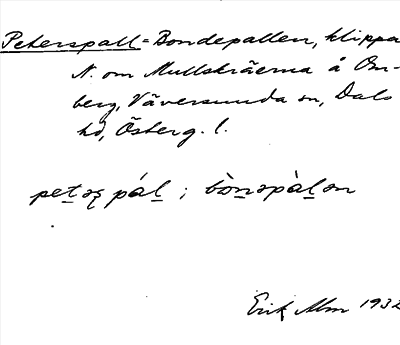 Peterspall = Bondepallen, klippa
N. om Mullskräerna å Om-
berg, Väversunda sn, Dals
hd, Österg. l.
pet̲əʂ pál̲ ; bòn̲əpàl̲ən
Erik Alm 1932